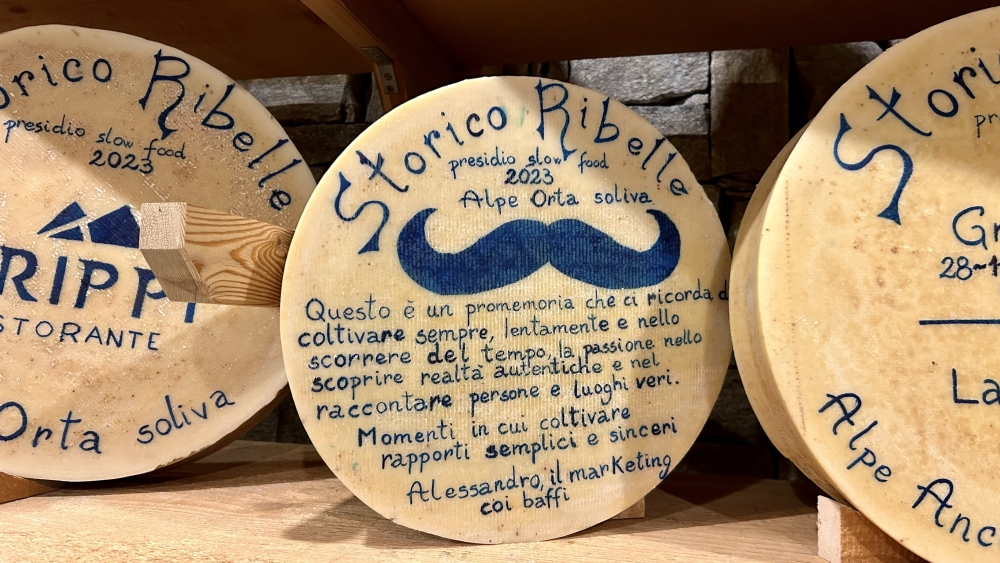 Ribelle
presidio slow food
2023
Orta soliva
Storico Ribelle
presidio slow food
2023
Alpe Orta soliva
Questo è un promemoria che ci ricorda d
coltivare sempre, lentamente e nello
scorrere del tempo, la passione nello
scoprire realtà autentiche e nel
raccontare persone e luoghi veri.
Momenti in cui coltivare
rapporti semplici e sinceri
Alessandro, il marketing
coi baffi
28-
Alpe